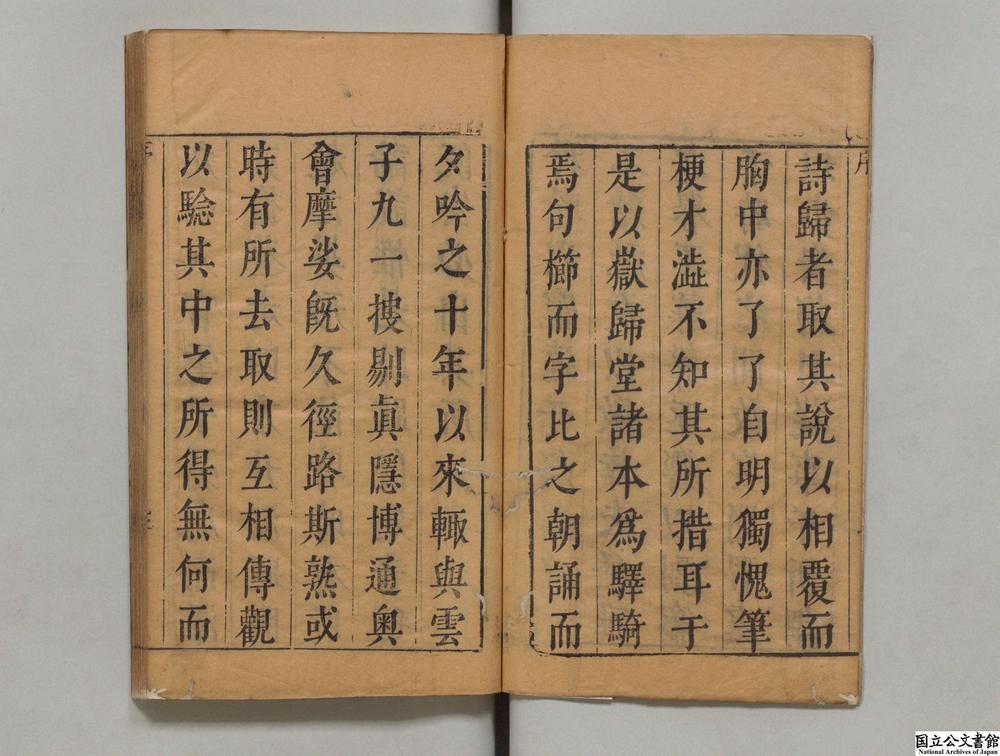 序
詩歸者取其說以相覆而
胸中亦了了自明獨愧筆
梗才澁不知其所措耳于
是以嶽歸堂諸本爲驛騎
焉句櫛而字比之朝誦而
夕吟之十年以來輙與雲
子九一搜剔眞隱博通奥
會摩娑旣久徑路斯熟或
時有所去取則互相傳觀
以驗其中之所得無何而
国立公文書館
National Archives of Japan